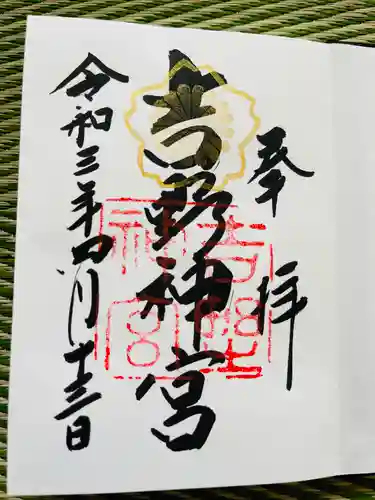 奉拝
吉野神宮
吉野神宮
令和三年四月十三日